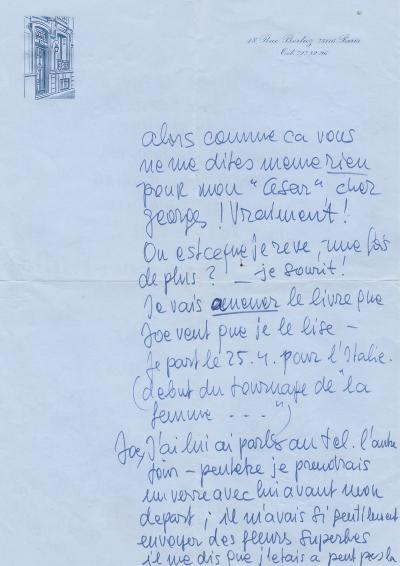 48 Rue Berlioz 75116 Paris
Tél. 727.52.96
alors comme ca vous
ne me dites meme rien
pour mon "Cesar" cher
georges ! Vraiment !
Ou est ce que je reve, une fois
de plus ? – je sourit !
Je vais amener le livre que
Joe veut que je le lise –
Je part le 25.4. pour l'Italie.
(debut du tournage de "la
femme . . . ")
Joe, J'ai lui ai parlé au tel. l'autre
jour – peutetre je prendrais
un verre avec lui avant mon
depart ; il m'avais si gentilment
envoyer des fleurs superbes
il me dis que j'etais a peut pres la